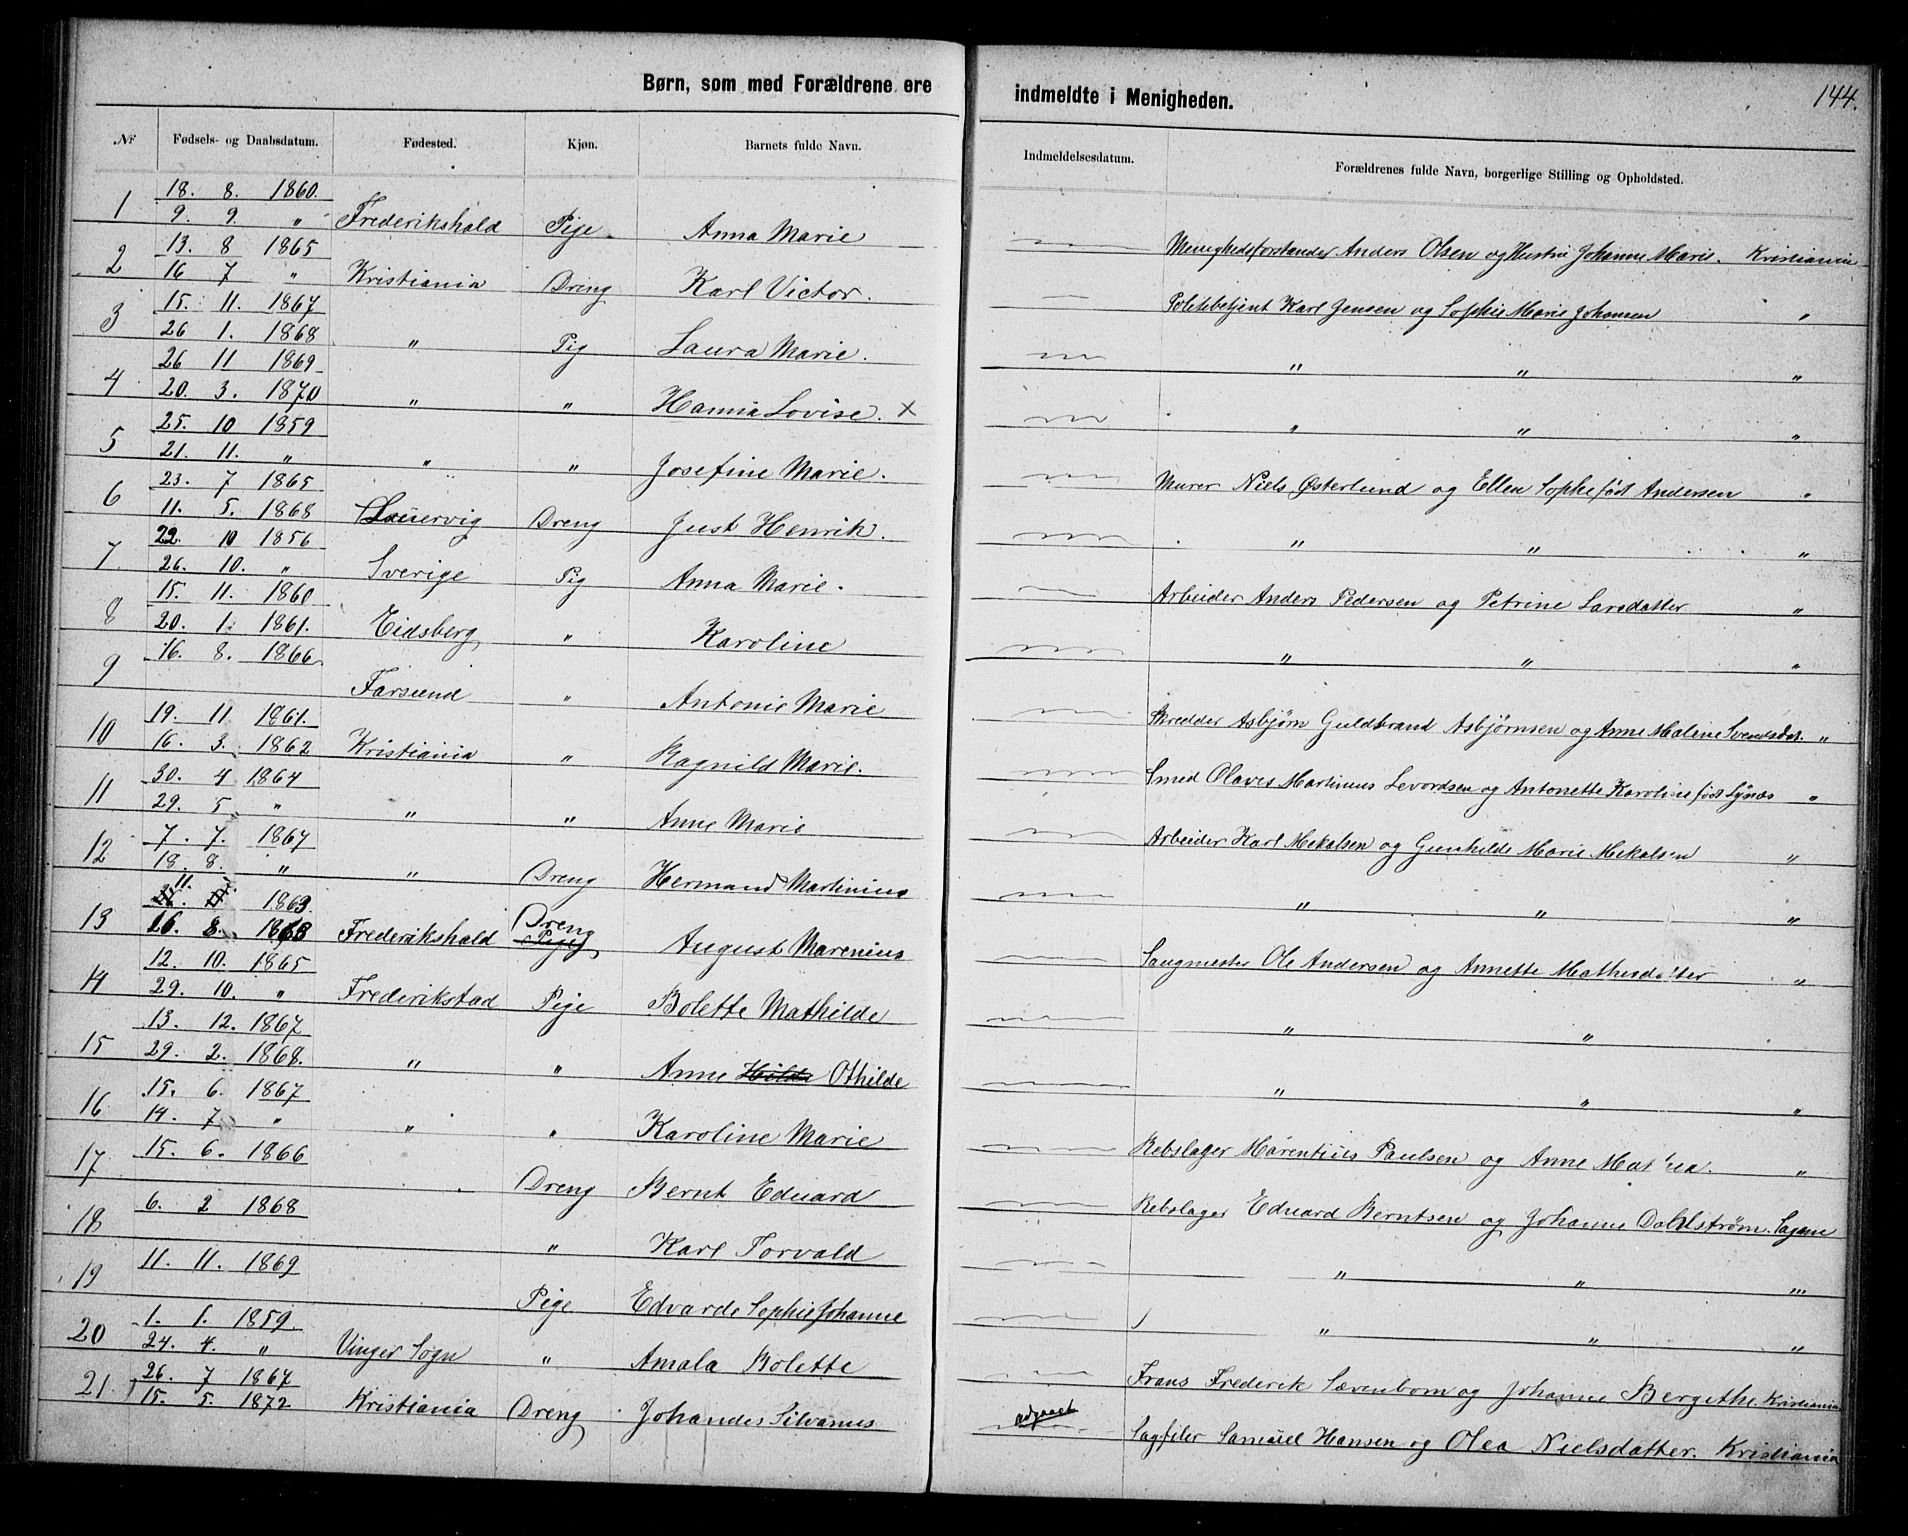 Børn, som med Forældrene ere indmeldte i Menigheden. 144.
Nr Fødsels- og Daabsdatum. Fødested. Kjøn. Barnets fulde Navn. Indmeldelsesdatum. Forældrenes fulde Navn, borgerlige Stilling og Opholdsted.
18. 8. 1860.
1 9. 9. " Frederikshald Pige. Anna Marie Menighedsforstander Anders Olsen og Hustru Johanne Marie. Kristiania
13. 8 1865
2 16 7 " Kristiania Dreng Karl Victor. Politibetjent Karl Jensen og Sophie Marie Johansen "
15. 11. 1867
3 26 1. 1868 " Pig Laura Marie. " " "
26 11 1869
4 20. 3. 1870 " " Hanna Lovise. x " " "
25. 10 1859
5 21. 11. " " " Josefine Marie. Murer Niels Østerlund og Ellen Sophie født Andersen "
23. 7 1865
6 11. 5. 1868 Laurvig Dreng Just Henrik. " " "
22. 10 1856
7 26. 10. " Sverige Pig Anna Marie. Arbeider Anders Pedersen og Petrine Larsdatter "
15. 11. 1860
8 20. 1. 1861. Eidsberg " Karoline " " "
16. 8. 1866
9 Farsund " Antonie Marie Skredder Asbjørn Guldbrand Asbjørnsen og Anne Maline Svendsdat. "
19. 11 1861.
10 16. 3. 1862 Kristiania " Ragnild Marie. Smed Olaves Martinius Levordsen og Antonette Karoline født Lynæs "
30. 4 1864
11 29. 5. " " " Anne Marie Arbeider Karl Mekalsen og Gunhilde Marie Mekalsen "
7. 7. 1867
12 18. 8. " " Dreng Hermand Martinius " " "
11. 7. 1863.
13 16. 8. 1863 Frederikshald Dreng Pige August Marenius Saugmester Ole Andersen og Annette Mathisdatter "
12. 10. 1865
14 29. 10. " Frederikstad Pige Bolette Mathilde " "
13. 12. 1867
15 29. 2. 1868. " " Anne Hilda Othilde " " "
15. 6. 1867
16 14. 7 " " " Karoline Marie Rebslager Marentius Paulsen og Anne Mathea. "
15. 6. 1866
17 Dreng Bernt Eduard Rebslager Eduard Berntsen og Johanne Dahlstrøm. Sagene
6. 2 1868
18 " Karl Torvald " " "
11. 11. 1869
19 Pige Edvarde Sophie Johanne " " "
1. 1. 1859.
20 24. 4. " Vinger Sogn " Amala Bolette Frans Frederik Sævenbom og Johanne Bergithe Kristiania
26. 7 1867
21. 15. 5. 1872 Kristiania Dreng Johandes Silvanus udgaaet Sagfiler Samuel Hansen og Olea Nielsdatter. Kristiania